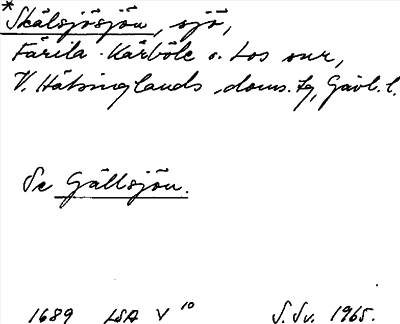 *Skålsjösjön, sjö,
Färila-Kårböle o. Los snr,
V. Hälsinglands doms. tg, Gävl. l.
Se Gällsjön.
1689 LSA V 10 S. Sv. 1965.